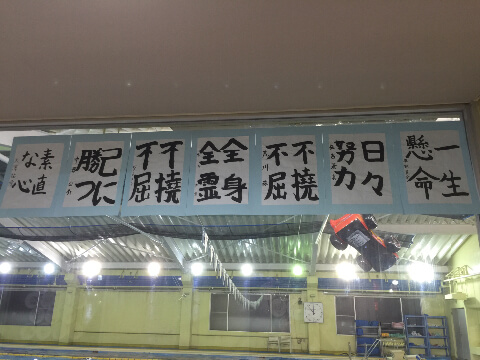 一生
懸命
日々
努力
不撓
不屈
全身
全霊
不撓
不屈
己に
勝つ
素直
な心